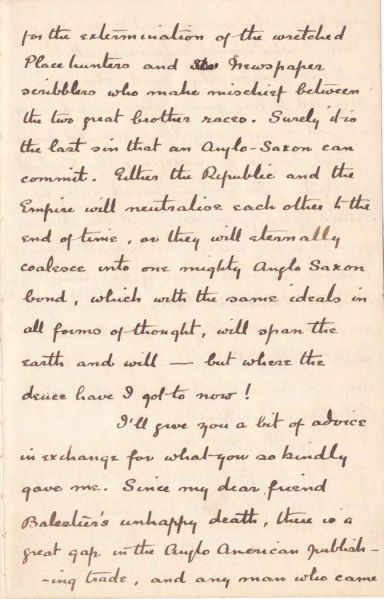 for the extermination of the wretched
Place hunters and Newspaper
scribblers who make mischief between
the two great brother races. Surely it is
the last sin that an Anglo-Saxon can
commit. Either the Republic and the
Empire will neutralise each other to the
end of time, or they will eternally
coalesce into one mighty Anglo Saxon
bond, which with the same ideals in
all forms of thought, will span the
earth and will — but where the
deuce have I got to now!
I'll give you a bit of advice
in exchange for what you so kindly
gave me. Since my dear friend
Balestier's unhappy death, there is a
great gap in the Anglo American publish-
-ing trade, and any man who came